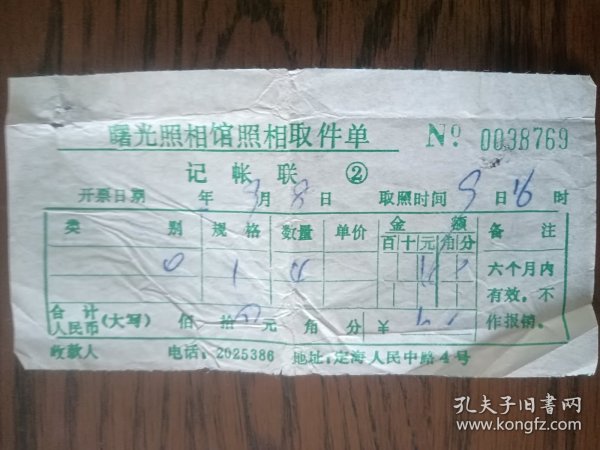 曙光照相馆照相取件单 Nº 0038769
记帐联 ②
开票日期 年 3月 8日 取照时间 9日 16时
类别 规格 数量 单价 金额 备注
百 十 元 角 分
0 1 4
六个月内
有效，不
作报销。
合计
人民币 (大写) 佰 拾 元 角 分 ¥
收款人 电话：2025386 地址：定海人民中路4号
孔夫子旧书网
www.kongfz.com